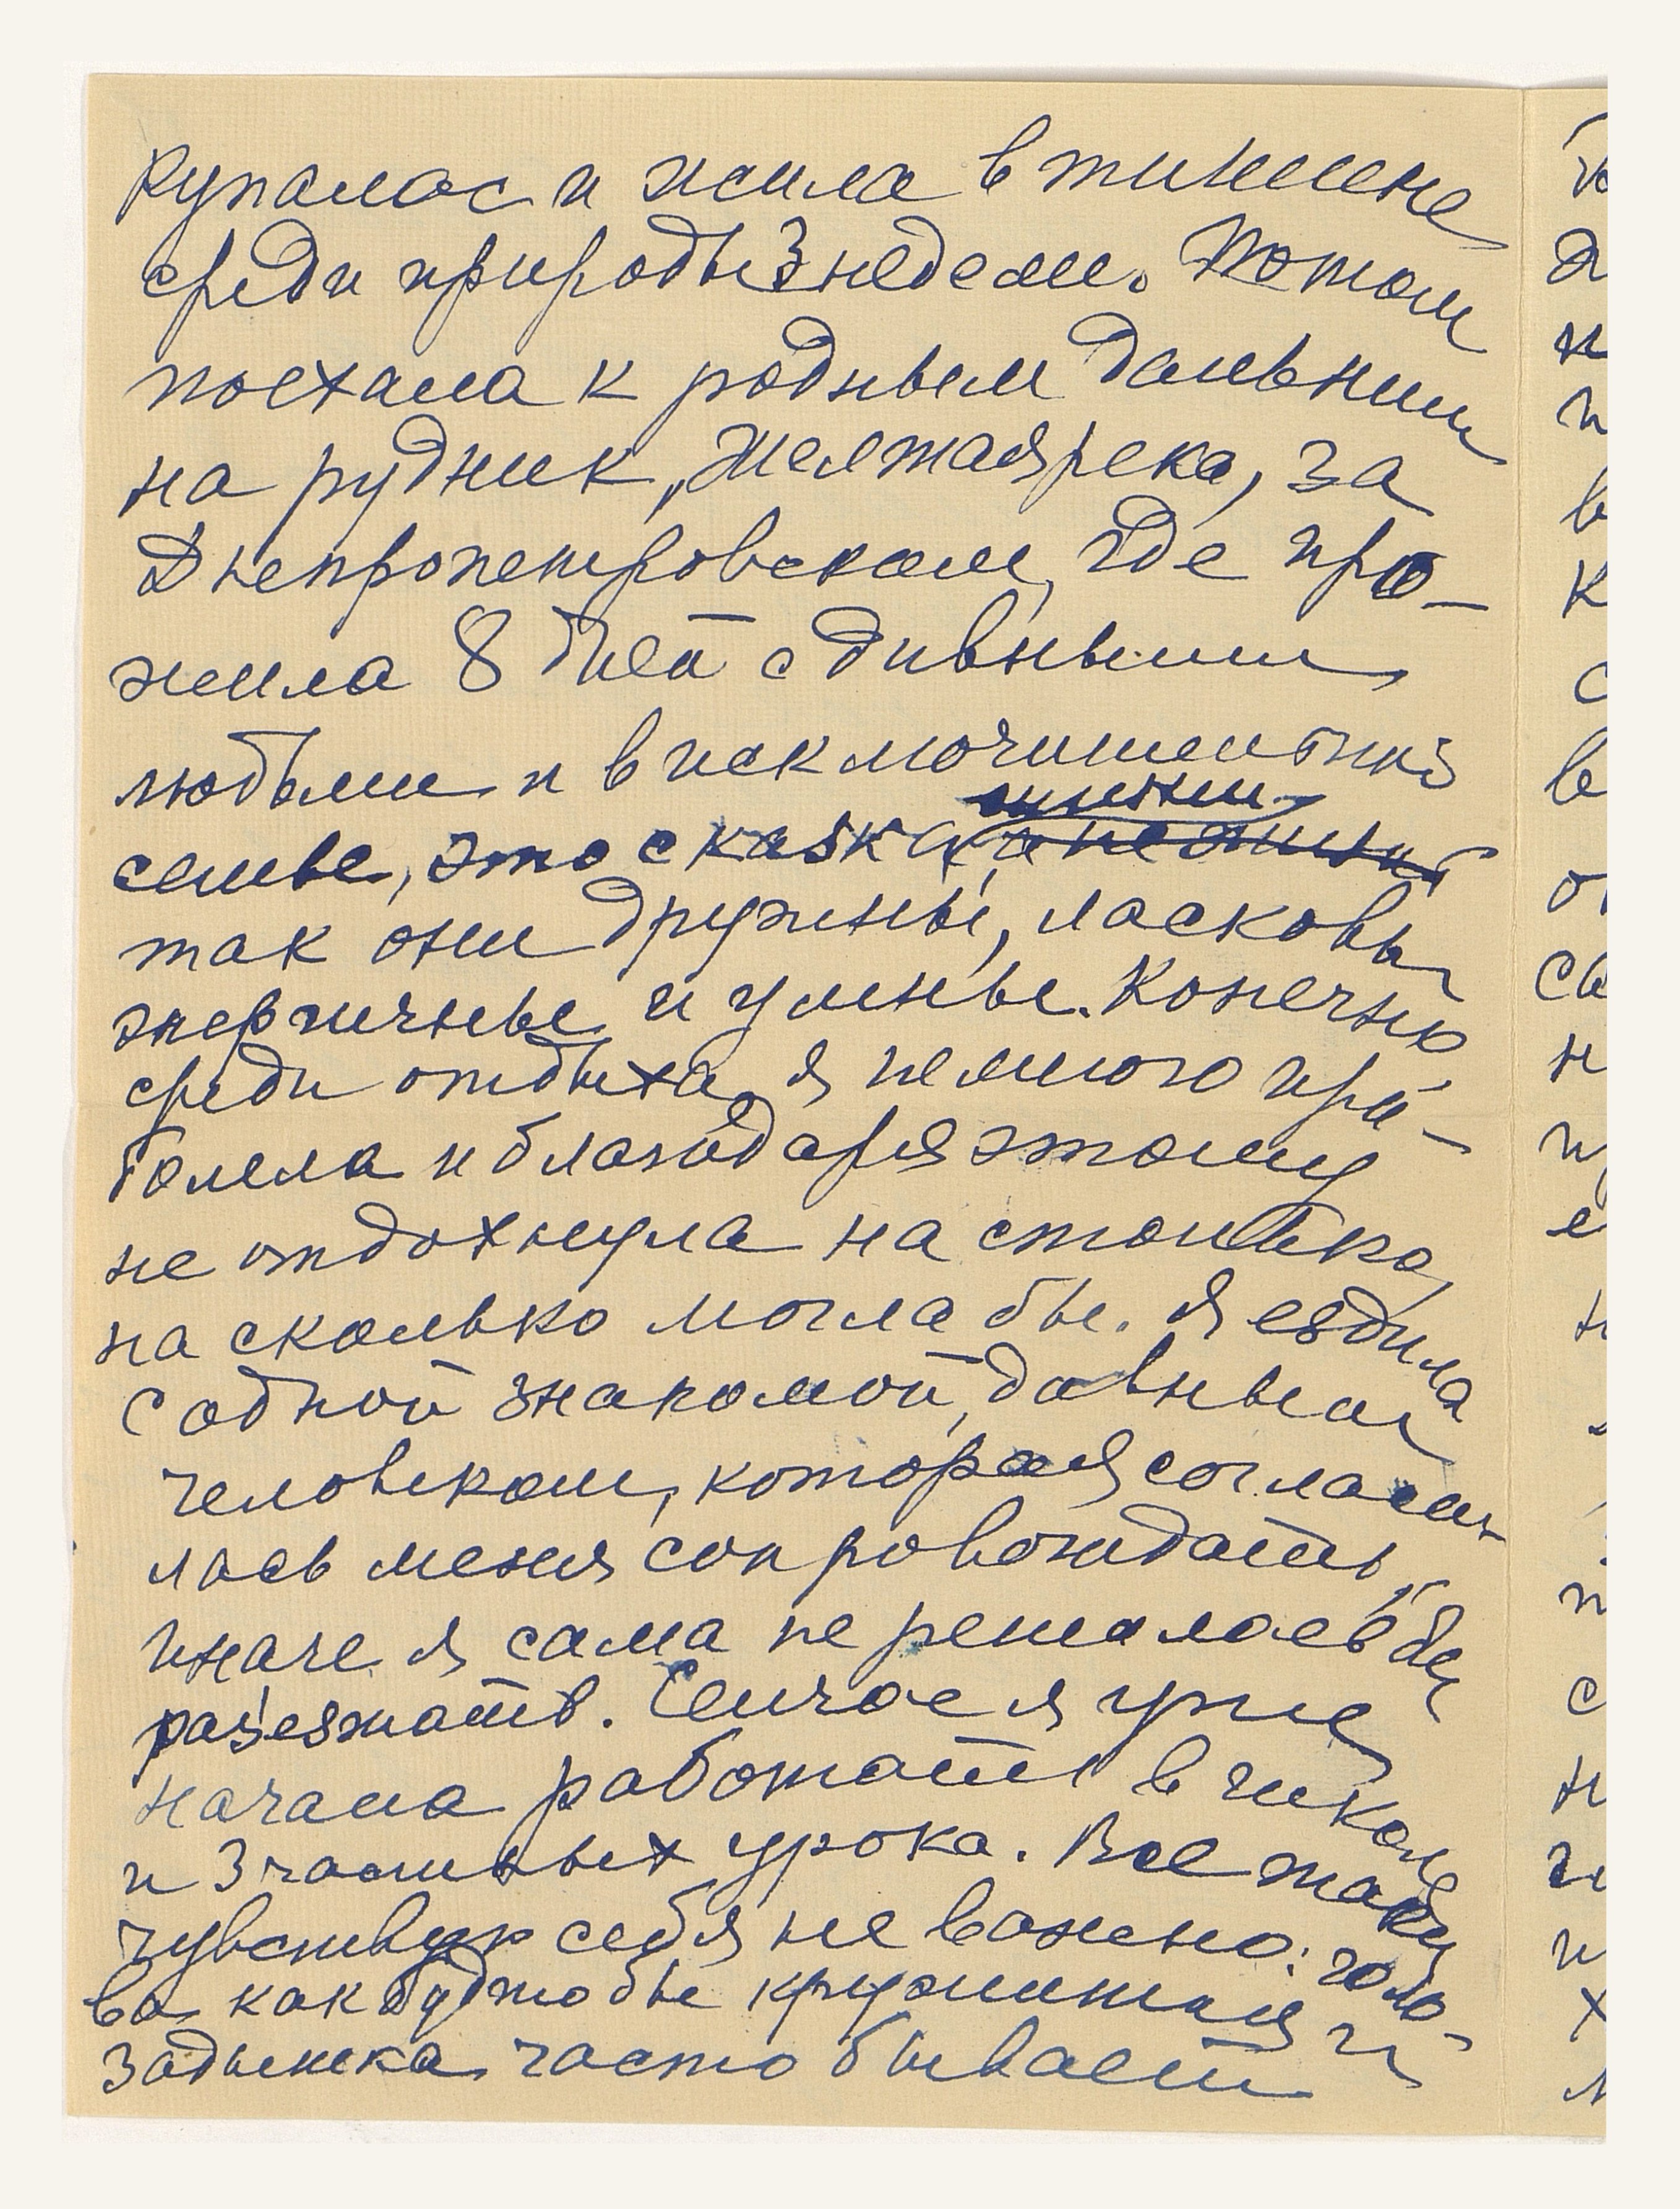 купалас и жила в тишине
среди природы 3 недели. Потом
поехала к родным дальним
на рудник „Желтая река, за
Днепропетровском, где про-
жила 8 дней с дивными
людьми и в исключительной
семье, это сказка, а не жизнь
так они дружны, ласковы
энергичные и умные. Конечно
среди отдыха я немного при-
болела и благодаря этому
не отдохнула на столько,
на сколько могла бы. Я ездила
с одной знакомой, давным
человеком, которая согласи-
лась меня сопровождать,
иначе я сама не решалась бы
разъезжать. Сейчас я уже
начала работать в школе
и 3 частных урока. Все таки
чувствую себя не важно: голо-
ва как будто бы кружится и
задышка часто бывает